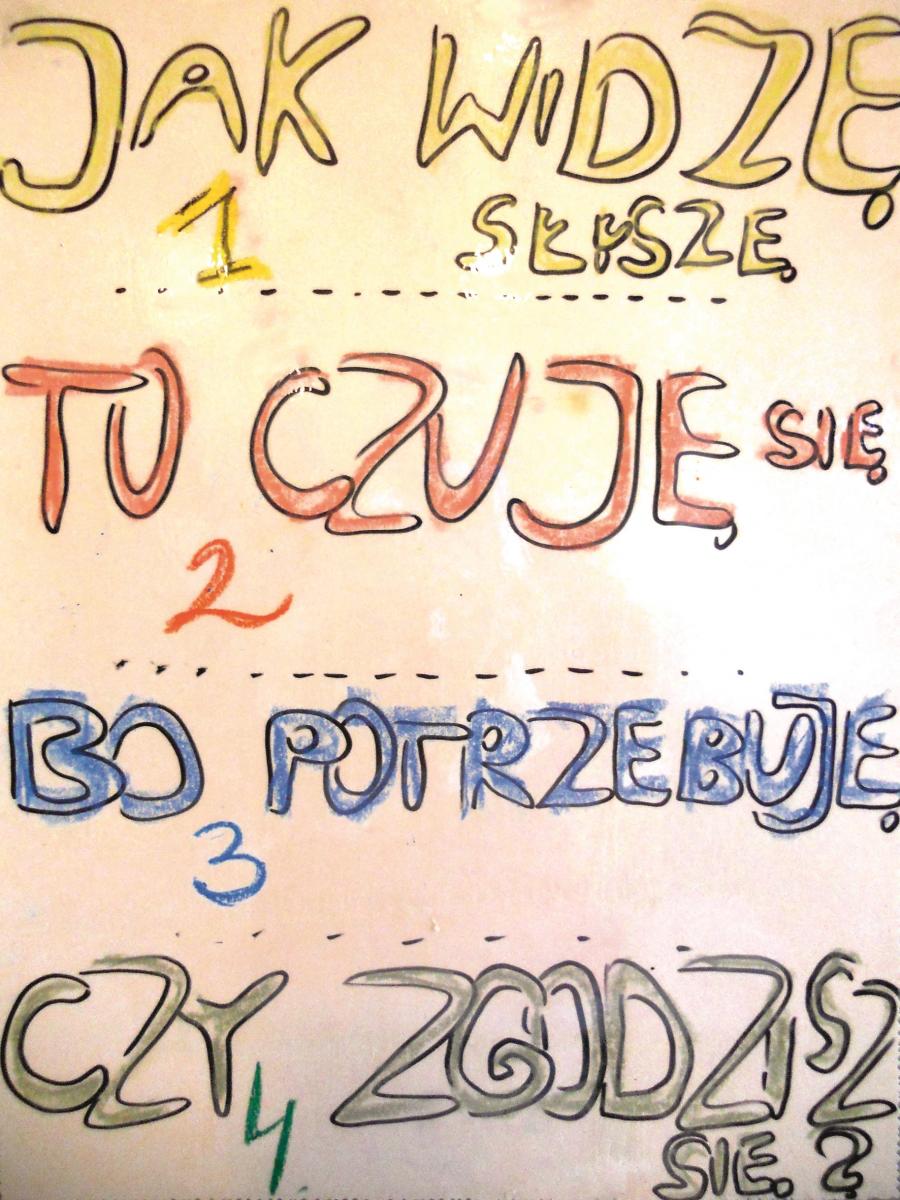 JAK WIDZĘ
1 SŁYSZĘ
TO CZUJĘ SIĘ
2
BO POTRZEBUJĘ
3
CZY ZGODZISZ
4
SIĘ ?